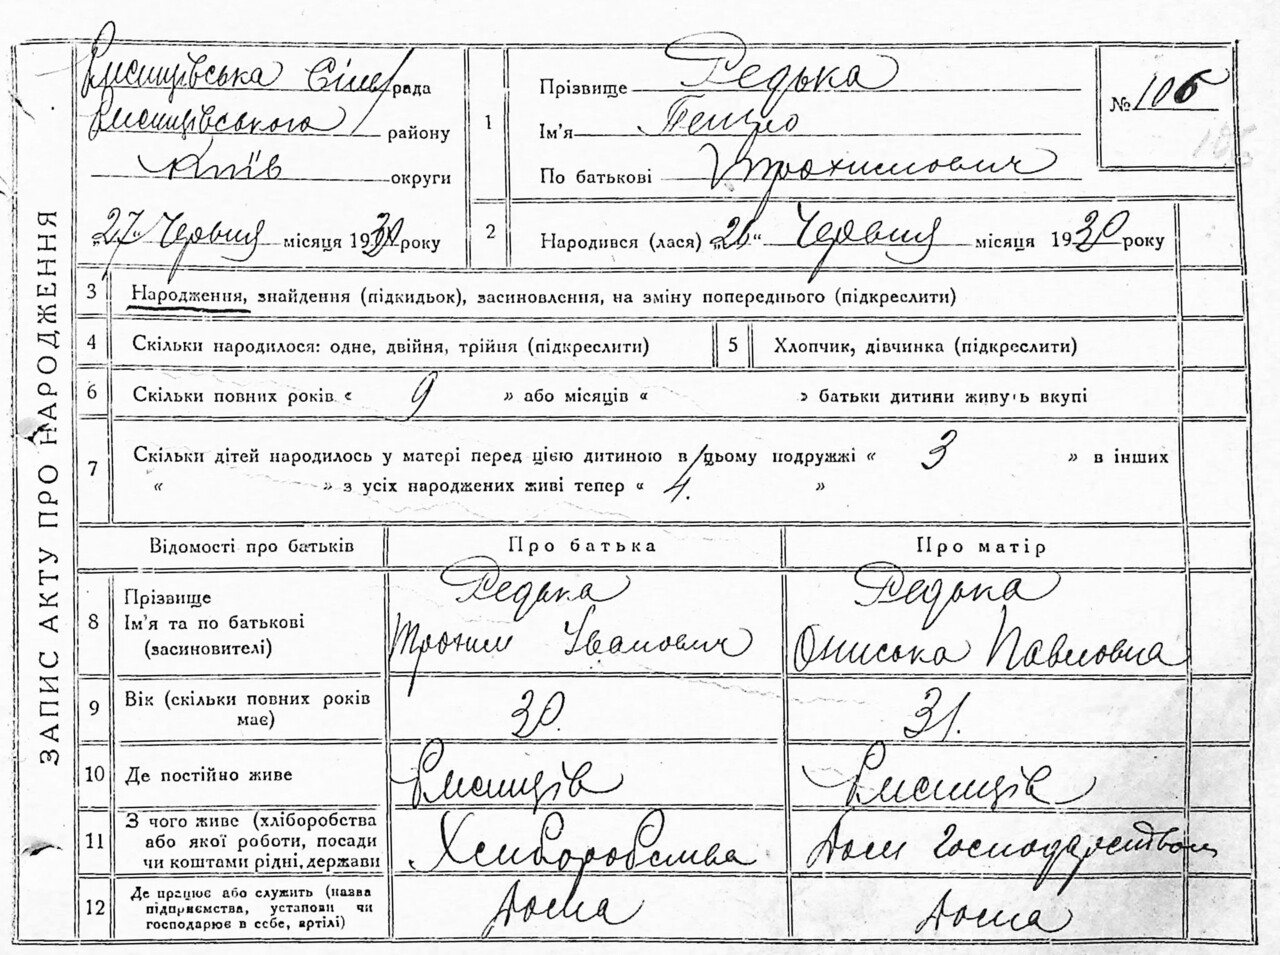 ЗАПИС АКТУ ПРО НАРОДЖЕННЯ
рада
району
Київ округи
„27“ Червня місяця 1930 року
1
Прізвище Редька
Ім'я Петро
По батькові Трохимович
№ 106
2
Народився (лася) „26“ Червня місяця 1930 року
3 Народження, знайдення (підкидьок), засиновлення, на зміну попереднього (підкреслити)
4 Скільки народилося: одне, двійня, трійня (підкреслити)
5 Хлопчик, дівчинка (підкреслити)
6 Скільки повних років « 9 » або місяців « » батьки дитини живуть вкупі
7 Скільки дітей народилось у матері перед цією дитиною в цьому подружжі « 3 » в інших
« » з усіх народжених живі тепер « 4. »
Відомості про батьків Про батька Про матір
8 Прізвище Редька Редька
Ім'я та по батькові Трохим Іванович Ониська Павловна
(засиновителі)
9 Вік (скільки повних років 30. 31.
має)
10 Де постійно живе
11 З чого живе (хліборобства
або якої роботи, посади
чи коштами рідні, держави Хліборобства Дом Господарством
12 Де працює або служить (назва
підприємства, установи чи
господарює в себе, артілі) Дома Дома